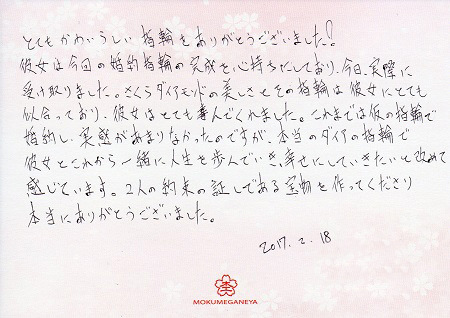 とてもかわいらしい指輪をありがとうございました!
彼女は今回の婚約指輪の完成を心待ちにしており、今日、実際に
受け取りました。さくらダイヤモンドの美しさとその指輪は彼女にとても
似合っており、彼女はとても喜んでくれました。これまでは仮の指輪で
婚約し、実感があまりなかったのですが、本当のダイヤの指輪で
彼女とこれから一緒に人生を歩んでいき、幸せにしていきたいと改めて
感じています。2人の約束の証しである宝物を作ってくださり
本当にありがとうございました。
2017. 2. 18
MOKUMEGANEYA